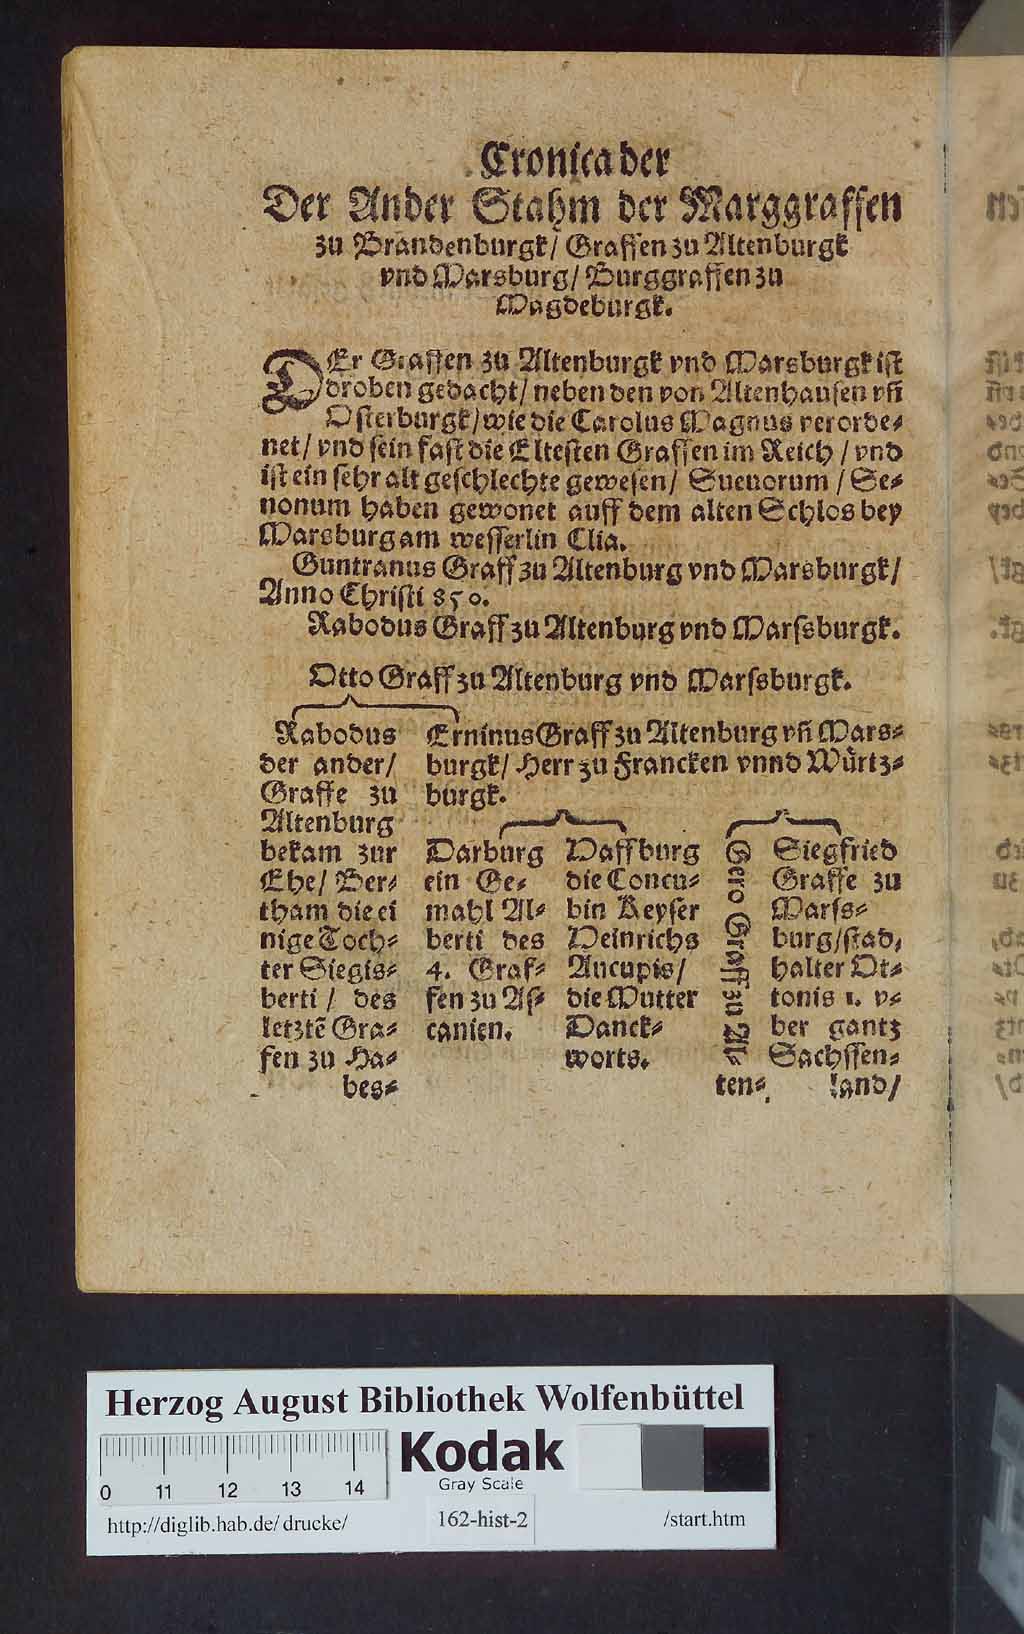 Cronica der
Der Ander Stahm der Marggraffen
zu Brandenburgk/ Graffen zu Altenburgk
vnd Marsburg/ Burggraffen zu
Magdeburgk.
DEr Graffen zu Altenburgk vnd Marsburgk ist
droben gedacht/ neben den von Altenhausen vñ
Osterburgk/ wie die Carolus Magnus verorde⸗
net/ vnd sein fast die Eltesten Graffen im Reich / vnd
ist ein sehr alt geschlechte gewesen/ Sueuorum / Se⸗
nonum haben gewonet auff dem alten Schlos bey
Marsburg am wesserlin Clia.
Guntranus Graff zu Altenburg vnd Marsburgk/
Anno Christi 850.
Rabodus Graff zu Altenburg vnd Marsburgk.
Otto Graff zu Altenburg vnd Marsburgk.
Rabodus
der ander/
Graffe zu
Altenburg
bekam zur
Ehe/ Ber⸗
tham die ei
nige Toch⸗
ter Siegis⸗
berti / des
letztẽ Gra⸗
fen zu Ha⸗
bes⸗
Erninus Graff zu Altenburg vñ Mars⸗
burgk/ Herr zu Francken vnnd Würtz⸗
burgk.
Harburg
ein Ge⸗
mahl Al⸗
berti des
4. Graf⸗
fen zu As⸗
canien.
Haffburg
die Concu⸗
bin Keyser
Heinrichs
Aucupis/
die Mutter
Danck⸗
worts.
Gero Graff zu Al⸗
ten⸗
Siegfried
Graffe zu
Marss⸗
burg/ stad,
halter Ot⸗
tonis 1. v⸗
ber gantz
Sachssen⸗
land/
Herzog August Bibliothek Wolfenbüttel
Kodak
Gray Scale
0 11 12 13 14
http://diglib.hab.de/drucke/ 162-hist-2 /start.htm